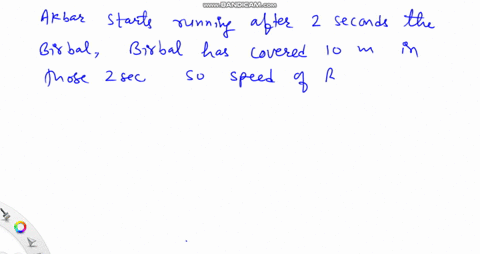 WWW.BANDICAM.COM
Akbar starts running after 2 seconds the
Birbal, Birbal has covered 10 m in
those 2 sec so speed of